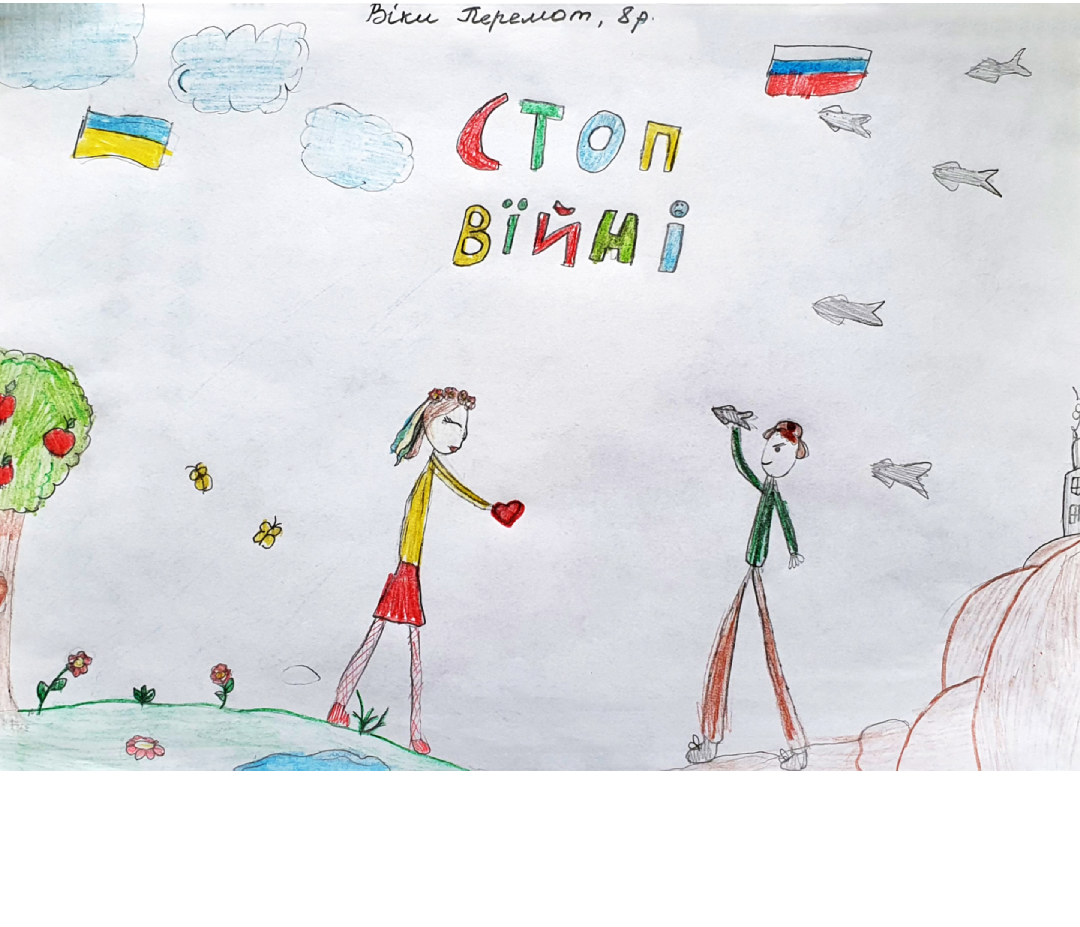 Віки Перемот, 8р.
СТОП
ВЇЙНІ